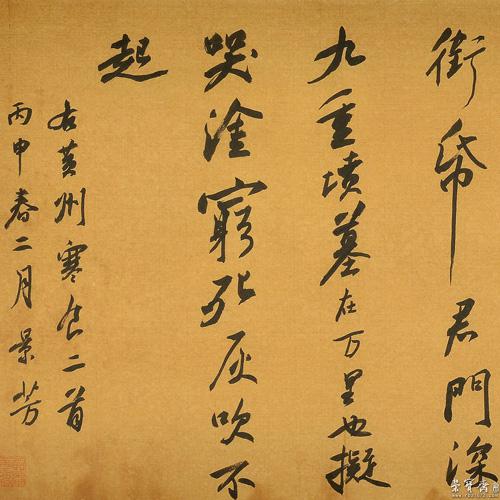 衘帋君門深
九重墳墓在万里也擬
哭塗窮死灰吹不
起
右黄州寒食二首
丙申春二月景芳